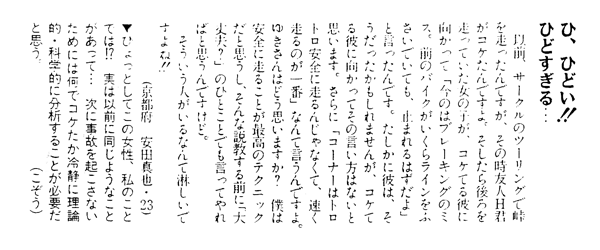 ひ、ひどい!!
ひどすぎる…
以前、サークルのツーリングで峠
を走ったんですが、その時友人H君
がコケたんですよ。そしたら後ろを
走っていた女の子が、コケてる彼に
向かって「今のはブレーキングのミ
ス。前のバイクがいくらラインをふ
さいでいても、止まれるはずだよ」
と言ったんです。たしかに彼は、そ
うだったかもしれませんが、コケて
る彼に向かってその言い方はないと
思います。さらに「コーナーはトロ
トロ安全に走るんじゃなくて、速く
走るのが一番」なんて言うんですよ。
ゆきさんはどう思いますか? 僕は
安全に走ることが最高のテクニック
だと思うし、そんな説教する前に「大
丈夫?」のひとことでも言ってやれ
ばと思うんですけど。
そういう人がいるなんて淋しいで
すよね!!
(京都府 安田真也・23)
▼ひょっとしてこの女性、私のこと
では!? 実は以前に同じようなこと
があって… 次に事故を起こさない
ためには何でコケたか冷静に理論
的・科学的に分析することが必要だ
と思う。
(こぞう)